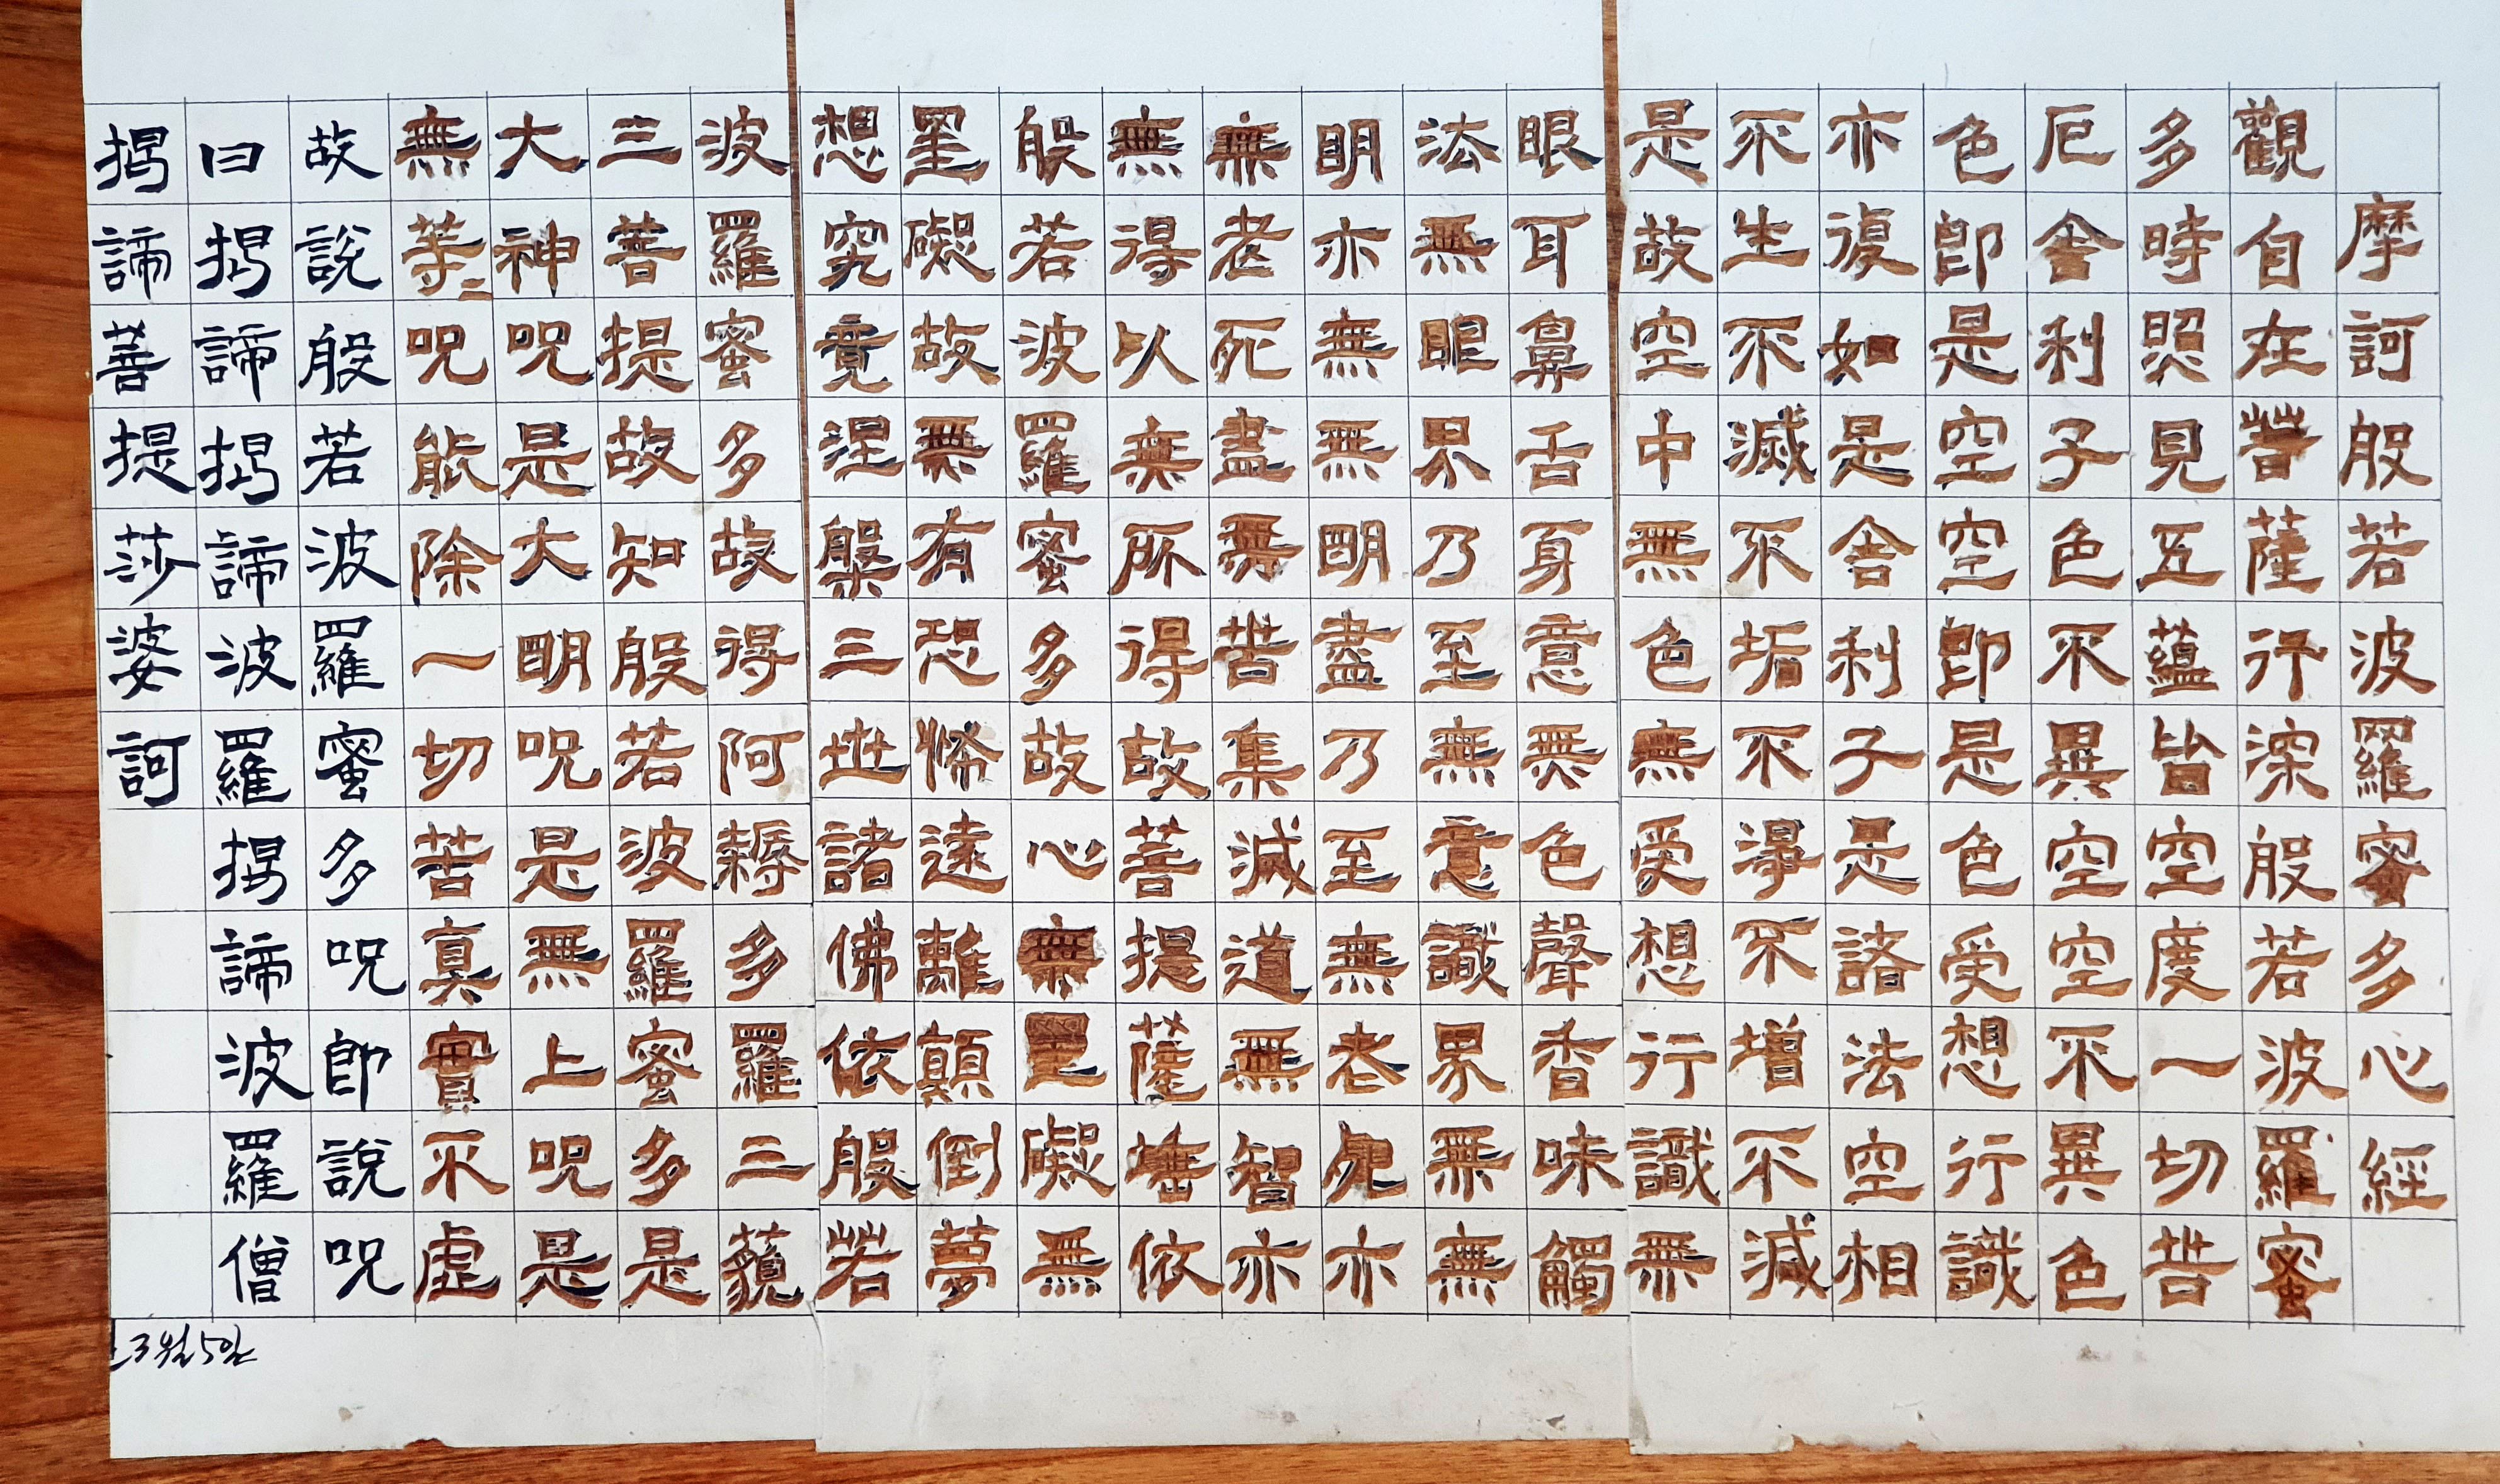 摩訶般若波羅蜜多心經
觀自在菩薩行深般若波羅蜜
多時照見五蘊皆空度一切苦
厄舍利子色不異空空不異色
色卽是空空卽是色受想行識
亦復如是舍利子是諸法空相
不生不滅不垢不淨不增不減
是故空中無色無受想行識無
眼耳鼻舌身意無色聲香味觸
法無眼界乃至無意識界無無
明亦無無明盡乃至無老死亦
無老死盡無苦集滅道無智亦
無得以無所得故菩提薩埵依
般若波羅蜜多故心無罣礙無
罣礙故無有恐怖遠離顛倒夢
想究竟涅槃三世諸佛依般若
波羅蜜多故得阿耨多羅三藐
三菩提故知般若波羅蜜多是
大神呪是大明呪是無上呪是
無等二呪能除一切苦眞實不虛
故說般若波羅蜜多呪卽說呪
曰揭諦揭諦波羅揭諦波羅僧
揭諦菩提莎婆訶
3월5일